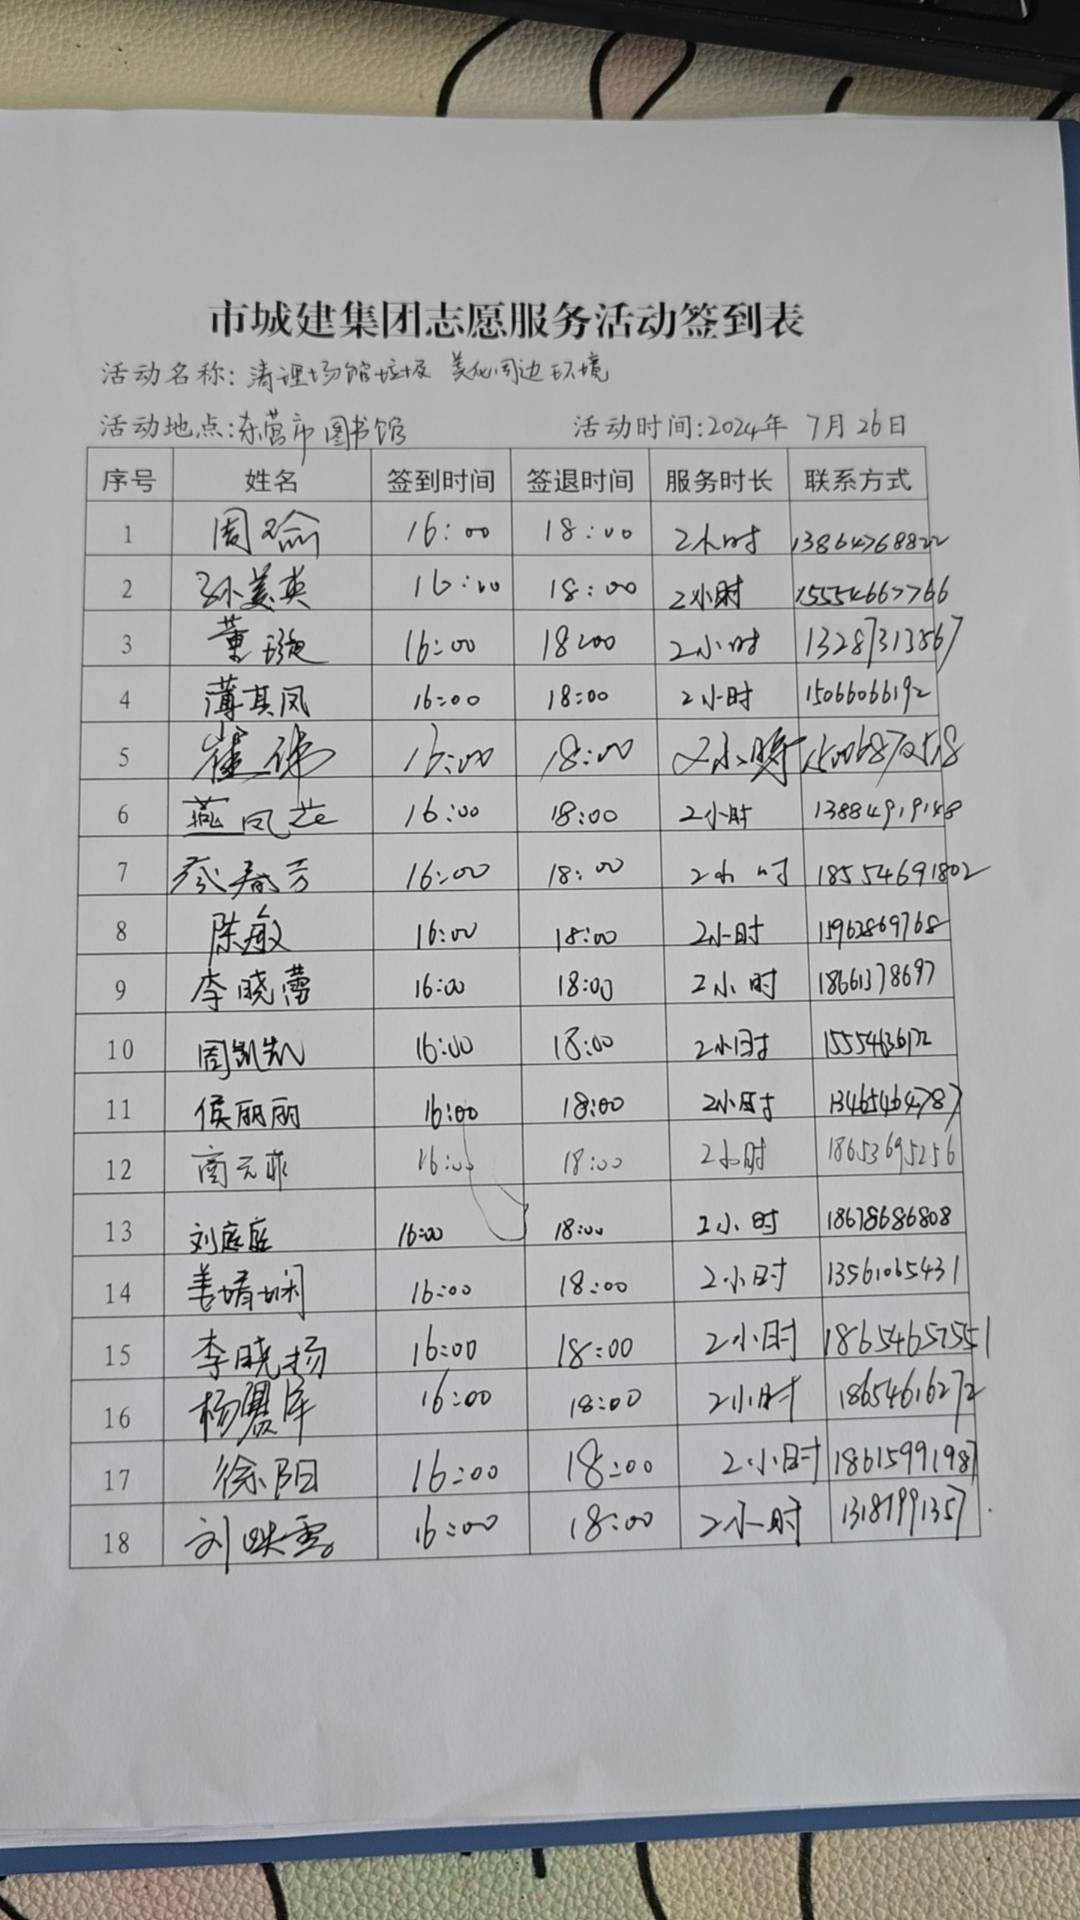 市城建集团志愿服务活动签到表
活动名称：清理场馆垃圾 美化周边环境
活动地点：东营市图书馆 活动时间：2024年 7月26日
序号 姓名 签到时间 签退时间 服务时长 联系方式
1 周瑜 16:00 18:00 2小时 13864768822
2 孙美英 16:00 18:00 2小时 15554667766
3 董璇 16:00 18:00 2小时 13287313867
4 薄其凤 16:00 18:00 2小时 15066066192
5 崔伟 16:00 18:00 2小时 15006872518
6 燕凤芝 16:00 18:00 2小时 13884919148
7 蔡春芳 16:00 18:00 2小时 18554691802
8 陈敏 16:00 18:00 2小时 15962869768
9 李晓蕾 16:00 18:00 2小时 18661378697
10 周凯凯 16:00 18:00 2小时 15554636172
11 侯丽丽 16:00 18:00 2小时 13465464787
12 商元菲 16:00 18:00 2小时 18653695256
13 刘庭庭 16:00 18:00 2小时 18678686808
14 姜堉娴 16:00 18:00 2小时 13561065431
15 李晓扬 16:00 18:00 2小时 18654652551
16 杨 16:00 18:00 2小时 18654616272
17 徐阳 16:00 18:00 2小时 18615991987
18 刘映雪 16:00 18:00 2小时 13181991357